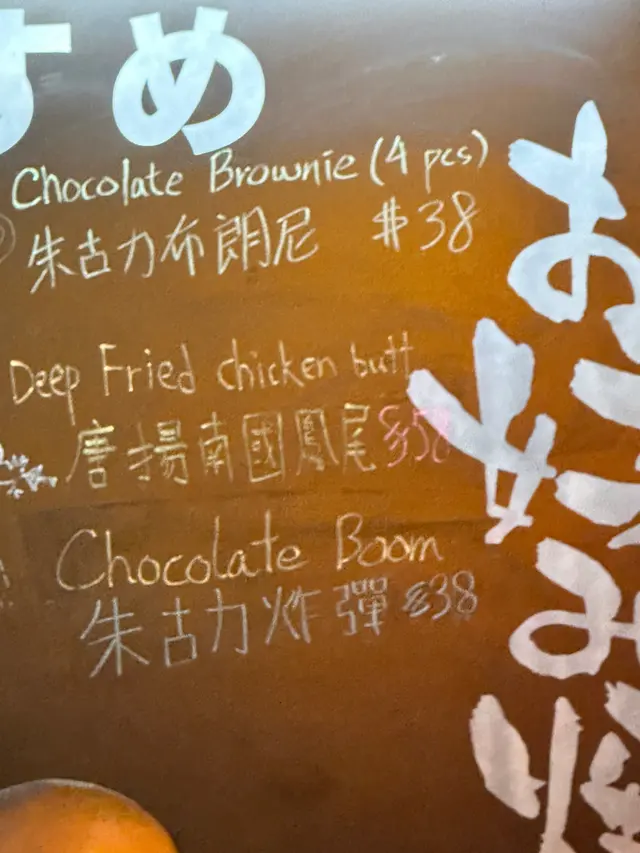 すめ
Chocolate Brownie (4 pcs)
朱古力布朗尼 $38
Deep Fried chicken butt
唐揚南國鳳尾 $58
Chocolate Boom
朱古力炸彈 $38
お好み焼